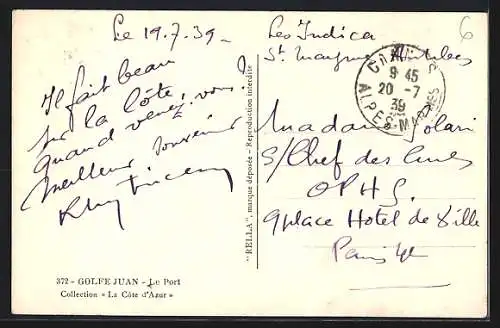 Le 19.7.39_
Il fait beau
sur la côte!
quand venez-vous?
meilleur souvenir
372 - GOLFE JUAN - Le Port
Collection « La Côte d'Azur »
"RELLA", marque déposée - Reproduction interdite
Les
St
Antibes
6
9 45
20 - 7
39
ALPES
MARMES
Madame
S/Chef des
OPHS.
9 place Hotel de Ville
Paris 4e